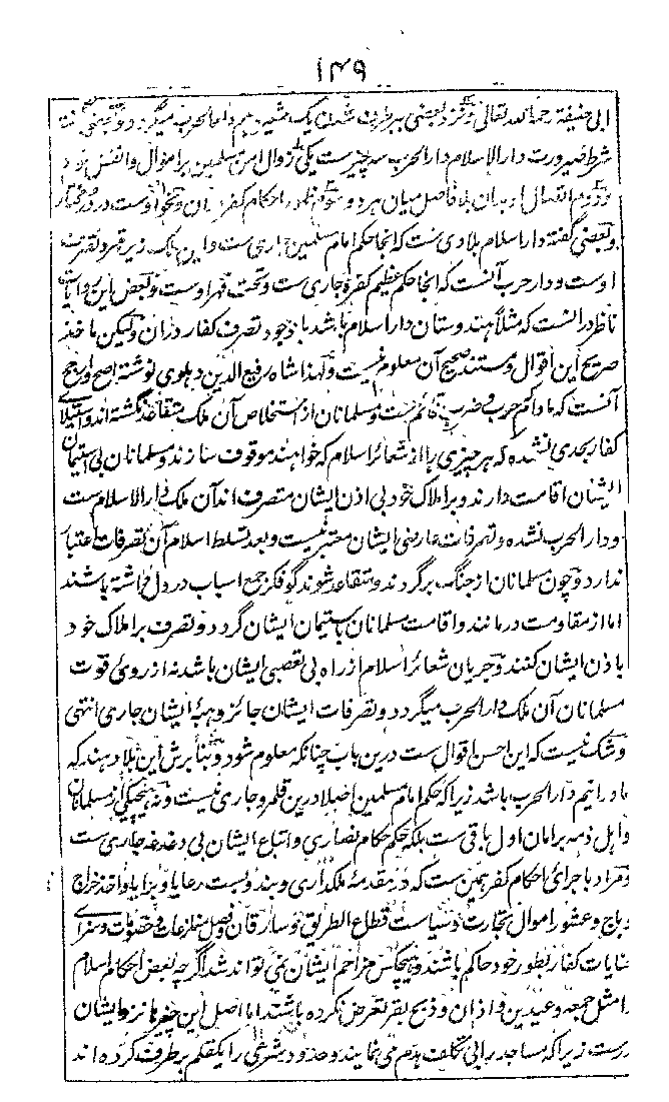 ۱۴۹
ابی حنیفة رحمه الله تعالی و نزد بعضی بر طرف شدن یک شعیره هم دارالحرب میگردد و بعضی گفته
شرط صیرورت دارالاسلام دارالحرب سه چیز ست یکی زوال امن مسلمین بر اموال و انفس خود
دوم اتصال او بدان بلا فاصل میان هر دو سوم ظهور احکام کفر دران و نحو او ست در درمختار
و بعضی گفته دار اسلام بلادی ست که آنجا حکم امام مسلمین جاری ست و این ملک زیر قهر و تصرف
اوست و دار حرب آنست که آنجا حکم عظیم کفره جاری ست و تحت قهر اوست و بعض این روایات
ناظر در آنست که مثلاً هندوستان دار اسلام باشد با وجود تصرف کفار دران ولیکن ماخذ
صریح این اقوال و مستند صحیح آن معلوم نیست ولهذا شاه رفیع الدین دهلوی نوشته اصح و ارجح
آنست که مادام حرب و ضرب قائم ست و مسلمانان از استخلاص آن ملک متقاعد نگشته اند و استیلای
کفار بحدی نشده که هر چیزی را از شعائر اسلام که خواهند موقوف سازند و مسلمانان بی استیمان
ایشان اقامت دارند و بر املاک خود بی اذن ایشان متصرف اند آن ملک دار الاسلام ست
و دار الحرب نشده و تصرفات عارضی ایشان معتبر نیست و بعد تسلط اسلام آن تصرفات اعتبار
ندارد و چون مسلمانان از جنگ برگردند و متقاعد شوند گو فکر جمع اسباب در دل داشته باشند
اما از مقاومت درمانند و اقامت مسلمانان باستیمان ایشان گردد و تصرف بر املاک خود
باذن ایشان کنند و جریان شعائر اسلام از راه بی تعصبی ایشان باشد نه از روی قوت
مسلمانان آن ملک دار الحرب میگردد و تصرفات ایشان جائز و هبهٔ ایشان جاری انتهی
و شک نیست که این احسن اقوال ست درین باب چنانکه معلوم شود و بنابرش این بلاد هند که
ما درانیم دار الحرب باشد زیرا که حکم امام مسلمین اصلا درین قلمرو جاری نیست و نه هیچیکی از مسلمانان
و اهل ذمه بر امان اول باقی ست بلکه حکم حکام نصاری و اتباع ایشان بی دغدغه جاری ست
و مراد باجرای احکام کفر همین ست که در مقدمهٔ ملکداری و بندوبست رعایا و برایا و اخذ خراج
و باج و عشور اموال تجارت و سیاست قطاع الطریق و سارقان و فصل منازعات و خصومات و سزای
جنایات کفار بطور خود حاکم باشند و هیچکس مزاحم ایشان نمی تواند شد اگرچه بعض احکام اسلام
را مثل جمعه و عیدین و اذان و ذبح بقر تعرض نکرده باشند اما اصل این چیزها نزد ایشان
درست زیرا که مساجد را بی تکلف هدم می نمایند و حدود شرعی را یکقلم بر طرف کرده اند